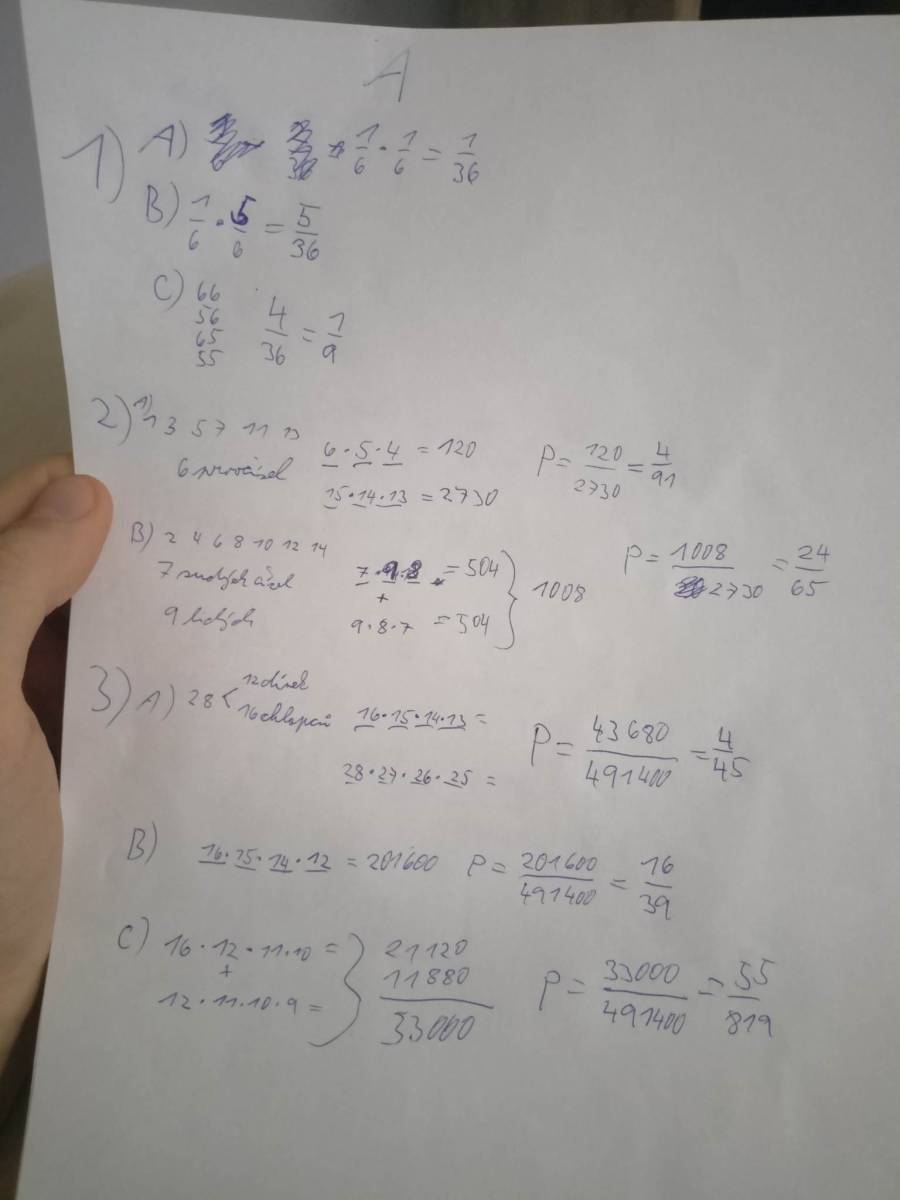 A
1) A) 1/6 · 1/6 = 1/36
B) 1/6 · 5/6 = 5/36
C) 66
56
65
55
4/36 = 1/9
2) A) 1 3 5 7 11 13
6 prvočísel
6 · 5 · 4 = 120
15 · 14 · 13 = 2730
P = 120/2730 = 4/91
B) 2 4 6 8 10 12 14
7 sudých čísel
9 lichých
7 · 9 · 8 = 504
+
9 · 8 · 7 = 504
} 1008
P = 1008/2730 = 24/65
3) A) 28 < 12 dívek
16 chlapců
16 · 15 · 14 · 13 =
28 · 27 · 26 · 25 =
P = 43680/491400 = 4/45
B) 16 · 15 · 14 · 12 = 201600
P = 201600/491400 = 16/39
C) 16 · 12 · 11 · 10 =
+
12 · 11 · 10 · 9 =
} 21120
11880
33000
P = 33000/491400 = 55/819